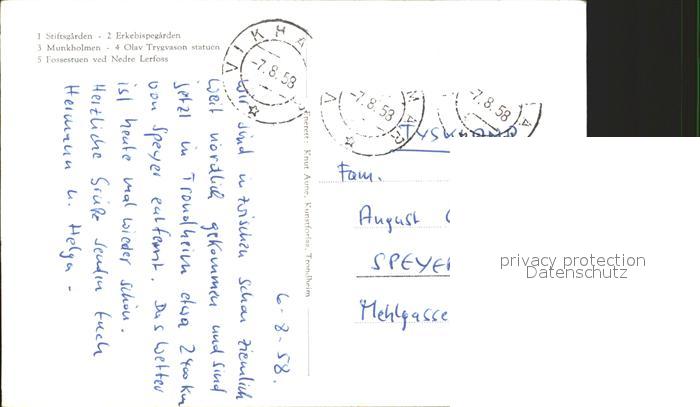 1 Stiftsgården - 2 Erkebispegården
3 Munkholmen - 4 Olav Trygvason statuen
5 Fossestuen ved Nedre Lerfoss
VIKHA
-7.8.58
-7.8.58
-7.8.58
Eneret: Knut Aune, Kunstforlag, Trondheim
6-8-58.
Wir sind inzwischen schon ziemlich
weit nördlich gekommen und sind
jetzt in Trondheim etwa 2400 km
von Speyer entfernt. Das Wetter
ist heute mal wieder schön.
Herzliche Grüße senden Euch
Hermann u. Helga -
TYSKLAND
Fam.
August
SPEYE
Mehlgasse
privacy protection
Datenschutz